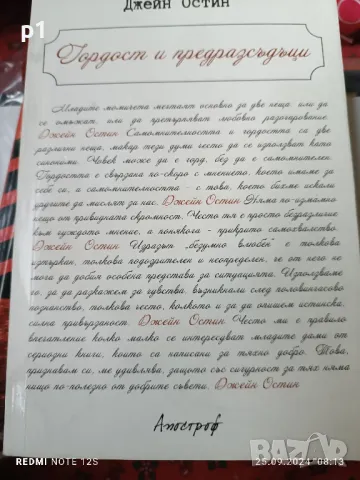 p1
Джейн Остин
Гордост и предразсъдъци
Младите момичета мечтаят основно за две неща: или да
се омъжат, или да претърпяват любовно разочарование.
Джейн Остин Самомнителността и гордостта са две
различни неща, макар тези думи често да се използват като
синоними. Човек може да е горд, без да е самомнителен.
Гордостта е свързана по-скоро с мнението, което имаме за
себе си, а самомнителността - с това, което бихме искали
другите да мислят за нас. Джейн Остин Няма по-измамно
нещо от привидната скромност. Често тя е просто безразличие
към чуждото мнение, а понякога - прикрито самохвалство.
Джейн Остин Изразът „безумно влюбен“ е толкова
изтъркан, толкова подозрителен и неопределен, че от него не
мога да добия особена представа за ситуацията. Използваме
го, за да разкажем за чувства, възникнали след половинчасово
познанство, толкова често, колкото и за да опишем истинска,
силна привързаност. Джейн Остин Често ми е правило
впечатление колко малко се интересуват младите дами от
сериозни книги, които са написани за тяхно добро. Това,
признавам си, ме удивлява, защото със сигурност за тях няма
нищо по-полезно от добрите съвети. Джейн Остин
Апостроф
REDMI NOTE 12S
25.09.2024 08:13
bazar